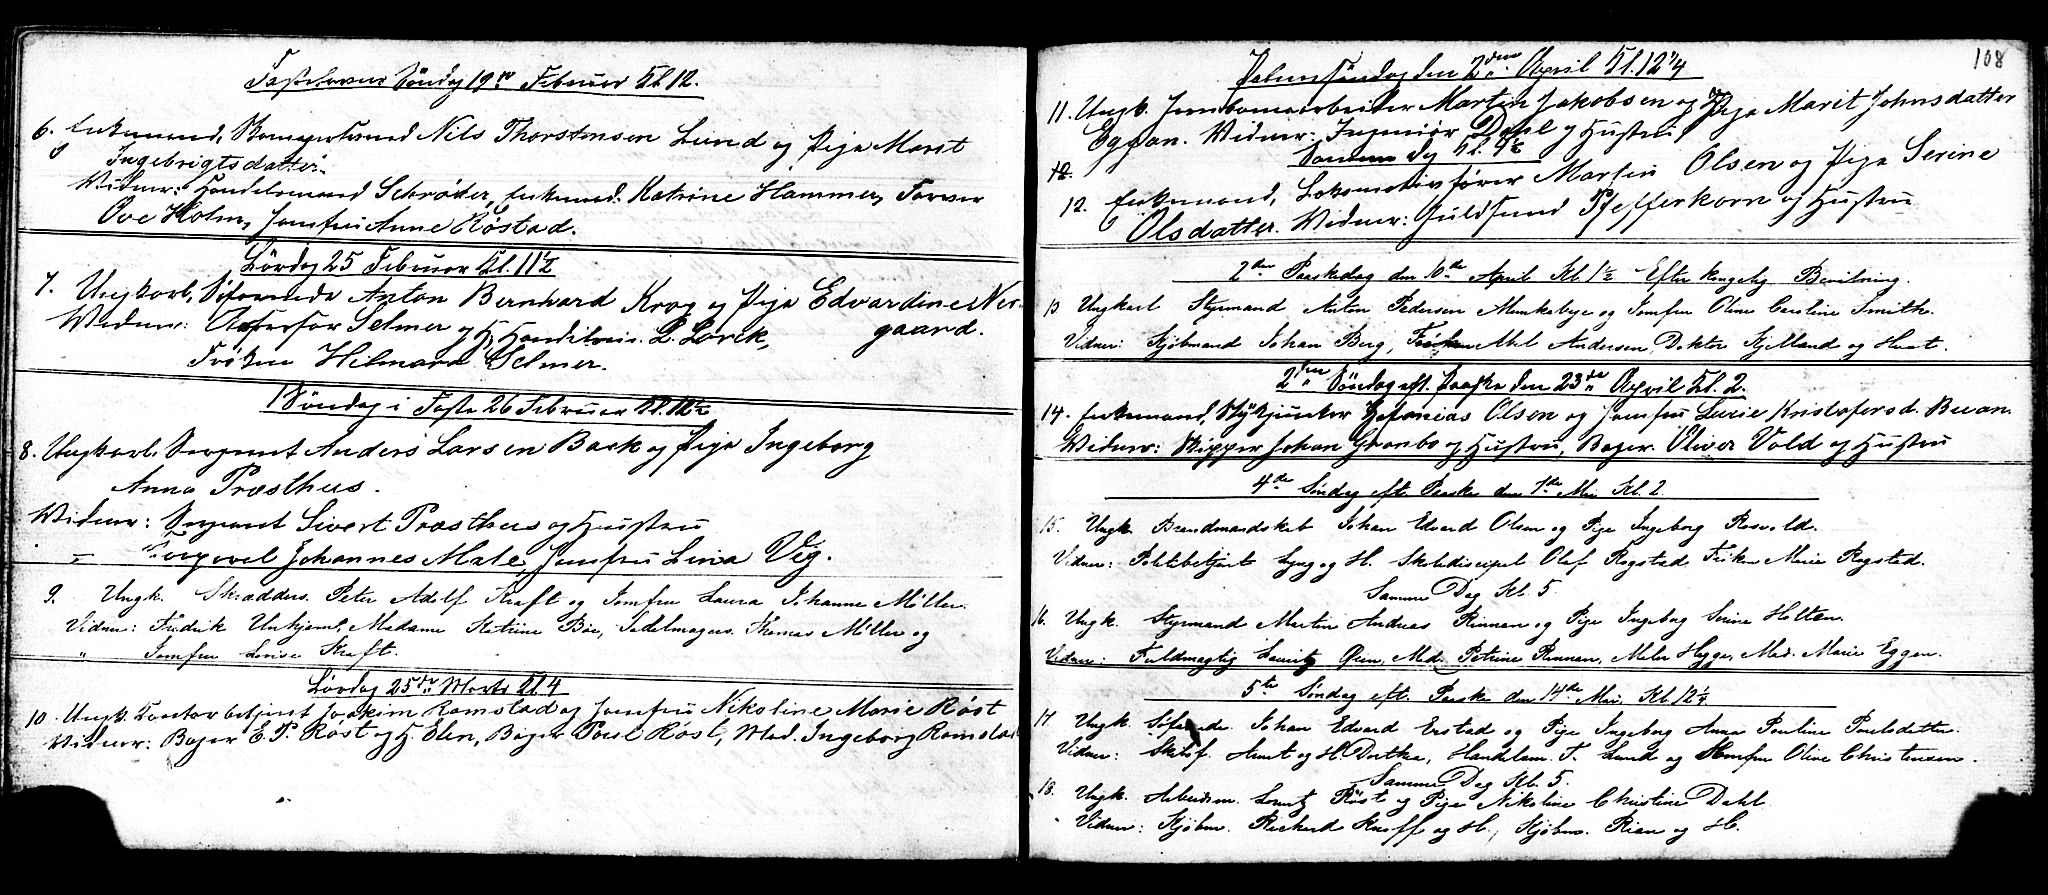 Fastelavns Søndag 19de Februar Kl. 12.
6. Enkemand, Nils Thorstensen Lund og Pige Marit
Ingebrigtsdatter.
Vidner: Handelsmand Schrøder, Enkemad. Katrine Hammer, Farver
Ove Holm, Jomfru Anne Røstad.
Lørdag 25 Februar Kl. 11½
7. Ungkarl, Søfarende Anton Bernhard Krog og Pige Edvardine Ner-
gaard.
Vidner: Selmer og H. L. Lørck,
Frøken Hilmara Selmer.
Søndag i Faste 26 Februar Kl. 12½
8. Ungkarl. Sergeant Anders Larsen Back og Pige Ingeborg
Anna Præsthus.
Vidner: Sergeant Sivert Præsthus og Hustru
" Johannes Male, Jomfru Lina Vig.
9. Ungk. Skrædders. Peter Adolf Kraft og Jomfru Laura Johanne Möller.
Vidner: Fredrik Madame Katrine Böe, Sadelmagers. Thomas Möller og
" Jomfru Lovise Kraft.
Lørdag 25de Marts Kl. 4
10. Ungk. Kontorbetjent Joakim Ramstad og Jomfru Nikoline Marie Røst
Vidner: Bager E. P. Røst og H. Elen, Bager Paul Røst, Mad. Ingeborg Ramstad
108
Palmesøndag den 2den April Kl. 12¼
11. Ungk. Jernbanearbeider Martin Jakobsen og Pige Marit Johnsdatter
Eggan. Vidner: Ingeniør Dahl og Hustru
Samme Dag Kl. 4½
12.
12. Enkemand, Lokomotivfører Martin Olsen og Pige Serine
Olsdatter. Vidner: Guldsmed Pfefferkorn og Hustru
2den Paaskedag den 10de April Kl. 1½ Efter kongelig Bevilning.
13. Ungkarl Styrmand Anton Pedersen Munkebye og Jomfru Oline Caroline Smith.
Vidner: Kjöbmand Johan Berg, Frøken Andersen, Doktor Kjelland og Hust.
2den Søndag eft. Paaske den 23de April Kl. 2.
14. Enkemand, Zefanias Olsen og Jomfru Lurie Kristofersd. Buan.
Vidner: Skipper Johan Granbo og Hustru, Bager Oliver Vold og Hustru
4de Søndag eft. Paaske den 7de Mai Kl. 2
15. Ungk. Brandmandskab Johan Edvard Olsen og Pige Ingeborg Rosvold.
Vidner: Politibetjent Lyng og H. Skolediscipel Olaf Rogstad, Frøken Marie Rogstad.
Samme Dag Kl. 5.
16. Ungk. Styrmand Martin Andreas Rinnan og Pige Ingeborg Serine Holten.
Vidner: Fuldmægtig Lauritz Öien, Mad. Petrine Rinnan, Maler Hegge, Mad. Marie Eggen.
5te Søndag eft. Paaske den 14de Mai, Kl. 12¼
17. Ungk. Søfarende Johan Edvard Erstad og Pige Ingeborg Anna Pauline Paulsdatter.
Vidner: Skibsf. Arnet og H. Dorthea, Handelsm. T. Lund og Jomfru Olive Christensen.
Samme Dag Kl. 5.
18. Ungk. Arbeidsm. Lorentz Röst og Pige Nikoline Christine Dahl.
Vidner: Kjöbm. Richard Knoff og H., Kjöbm. Rian og H.